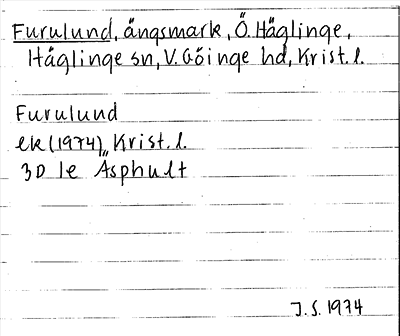 Furulund, ängsmark, Ö. Häglinge,
Häglinge sn, V. Göinge hd, Krist. l.
Furulund
ek (1974), Krist. l.
3D 1e Äsphult
J. S. 1974